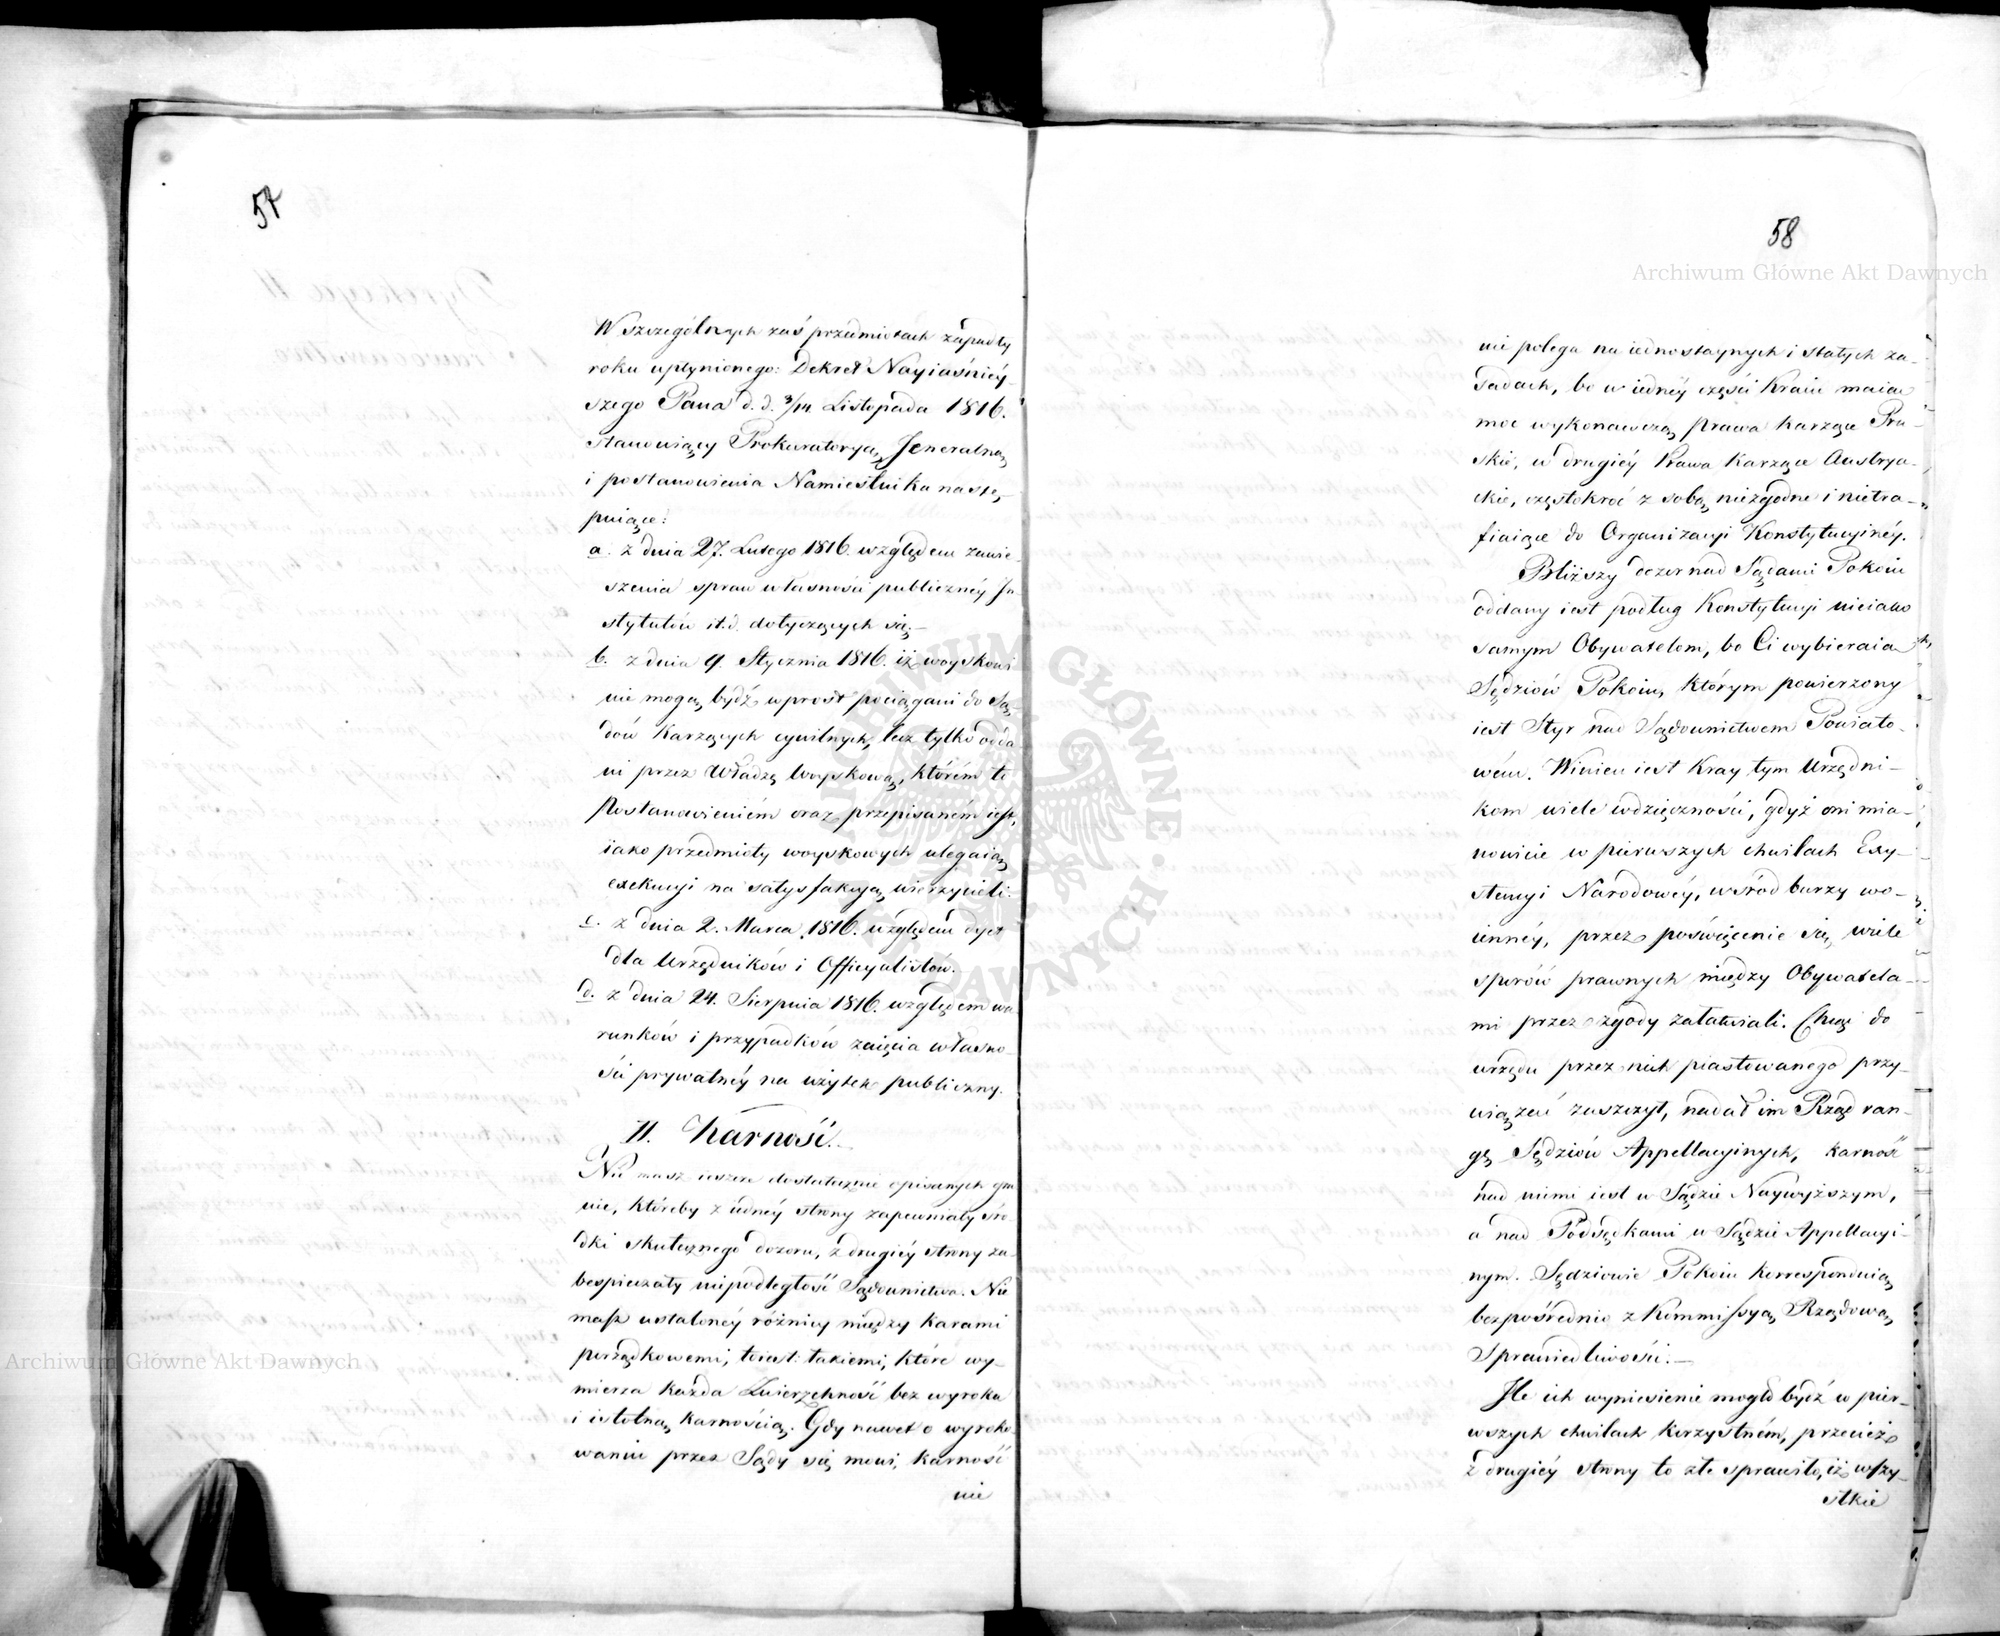 57
W szczególnych zaś przedmiotach zapadły
roku upłynionego: Dekret Nayiaśniéy-
szego Pana d. d. 3/14 Listopada 1816.
stanowiący Prokuratoryą Jeneralną
i postanowienia Namiestnika nastę-
puiące:
a. z dnia 27. Lutego 1816. względem zawie-
szenia spraw własności publicznéy In-
stytutów it.d. dotyczących się.—
b. z dnia 9. Stycznia 1816. iż woyskowi
nie mogą bydź wprost pociągani do Są-
dów Karzących cywilnych, lecz tylko odda-
ni przez Władzę Woyskową, którém to
Postanowieniém oraz przepisaném iest,
iako przedmioty woyskowych ulegaią
exekucyi na satysfakcyą wierzycieli.
c. z dnia 2. Marca 1816. względem dyet
dla Urzędników i Officyalistów.
d. z dnia 24. Sierpnia 1816. względem wa-
runków i przypadków zaięcia własno-
ści prywatnéy na użytek publiczny.
II. Karność.
Nie masz ieszcze dostatecznie opisanych gra-
nic, któreby z iednéy strony zapewniały śro-
dki skutecznego dozoru, z drugiéy strony za-
bespieczały niepodległość Sądownictwa. Nie
masz ustalonéy różnicy między karami
porządkowemi, toiest: takiemi, które wy-
mierza każda Zwierzchność bez wyroku
i istotną Karnością. Gdy nawet o wyroko-
waniu przez Sądy się mowi, Karność
nie
58
nie polega na iednostaynych i stałych za-
sadach, bo w iednéy części Kraiu maią
moc wykonawczą prawa karzące Pru-
skie, w drugiéy Prawa Karzące Austrya-
ckie, częstokroć z sobą niezgodne i nietra-
fiaiące do Organizacyi Konstytucyinéy.
Bliższy dozór nad Sądami Pokoiu
oddany iest podług Konstytucyi nieiako
samym Obywatelom, bo Ci wybieraią
Sędziów Pokoiu, którym powierzony
iest Styr nad Sądownictwem Powiato-
wém. Winien iest Kray tym Urzędni-
kom wiele wdzięczności, gdyż oni mia-
nowicie w pierwszych chwilach Exy-
stencyi Narodowéy, wśród burzy wo-
iennéy, przez poświęcenie się wiele
sporów prawnych między Obywatela-
mi przez zgody załatwiali. Chcąc do
urzędu przez nich piastowanego przy-
wiązać zaszczyt, nadał im Rząd ran-
gę Sędziów Appellacyinych, Karność
nad niemi iest w Sądzie Naywyższym,
a nad Podsędkami w Sądzie Appellacyi-
nym. Sędziowie Pokoiu korrespondują
bezpośrednio z Kommissyą Rządową
Sprawiedliwości.—
Ile ich wyniesienie mogło bydź w pier-
wszych chwilach korzystném, przecież
z drugiéy strony to złe sprawiło, iż wszy-
stkie
Archiwum Główne Akt Dawnych
Archiwum Główne Akt Dawnych
ARCHIWUM GŁÓWNE AKT DAWNYCH